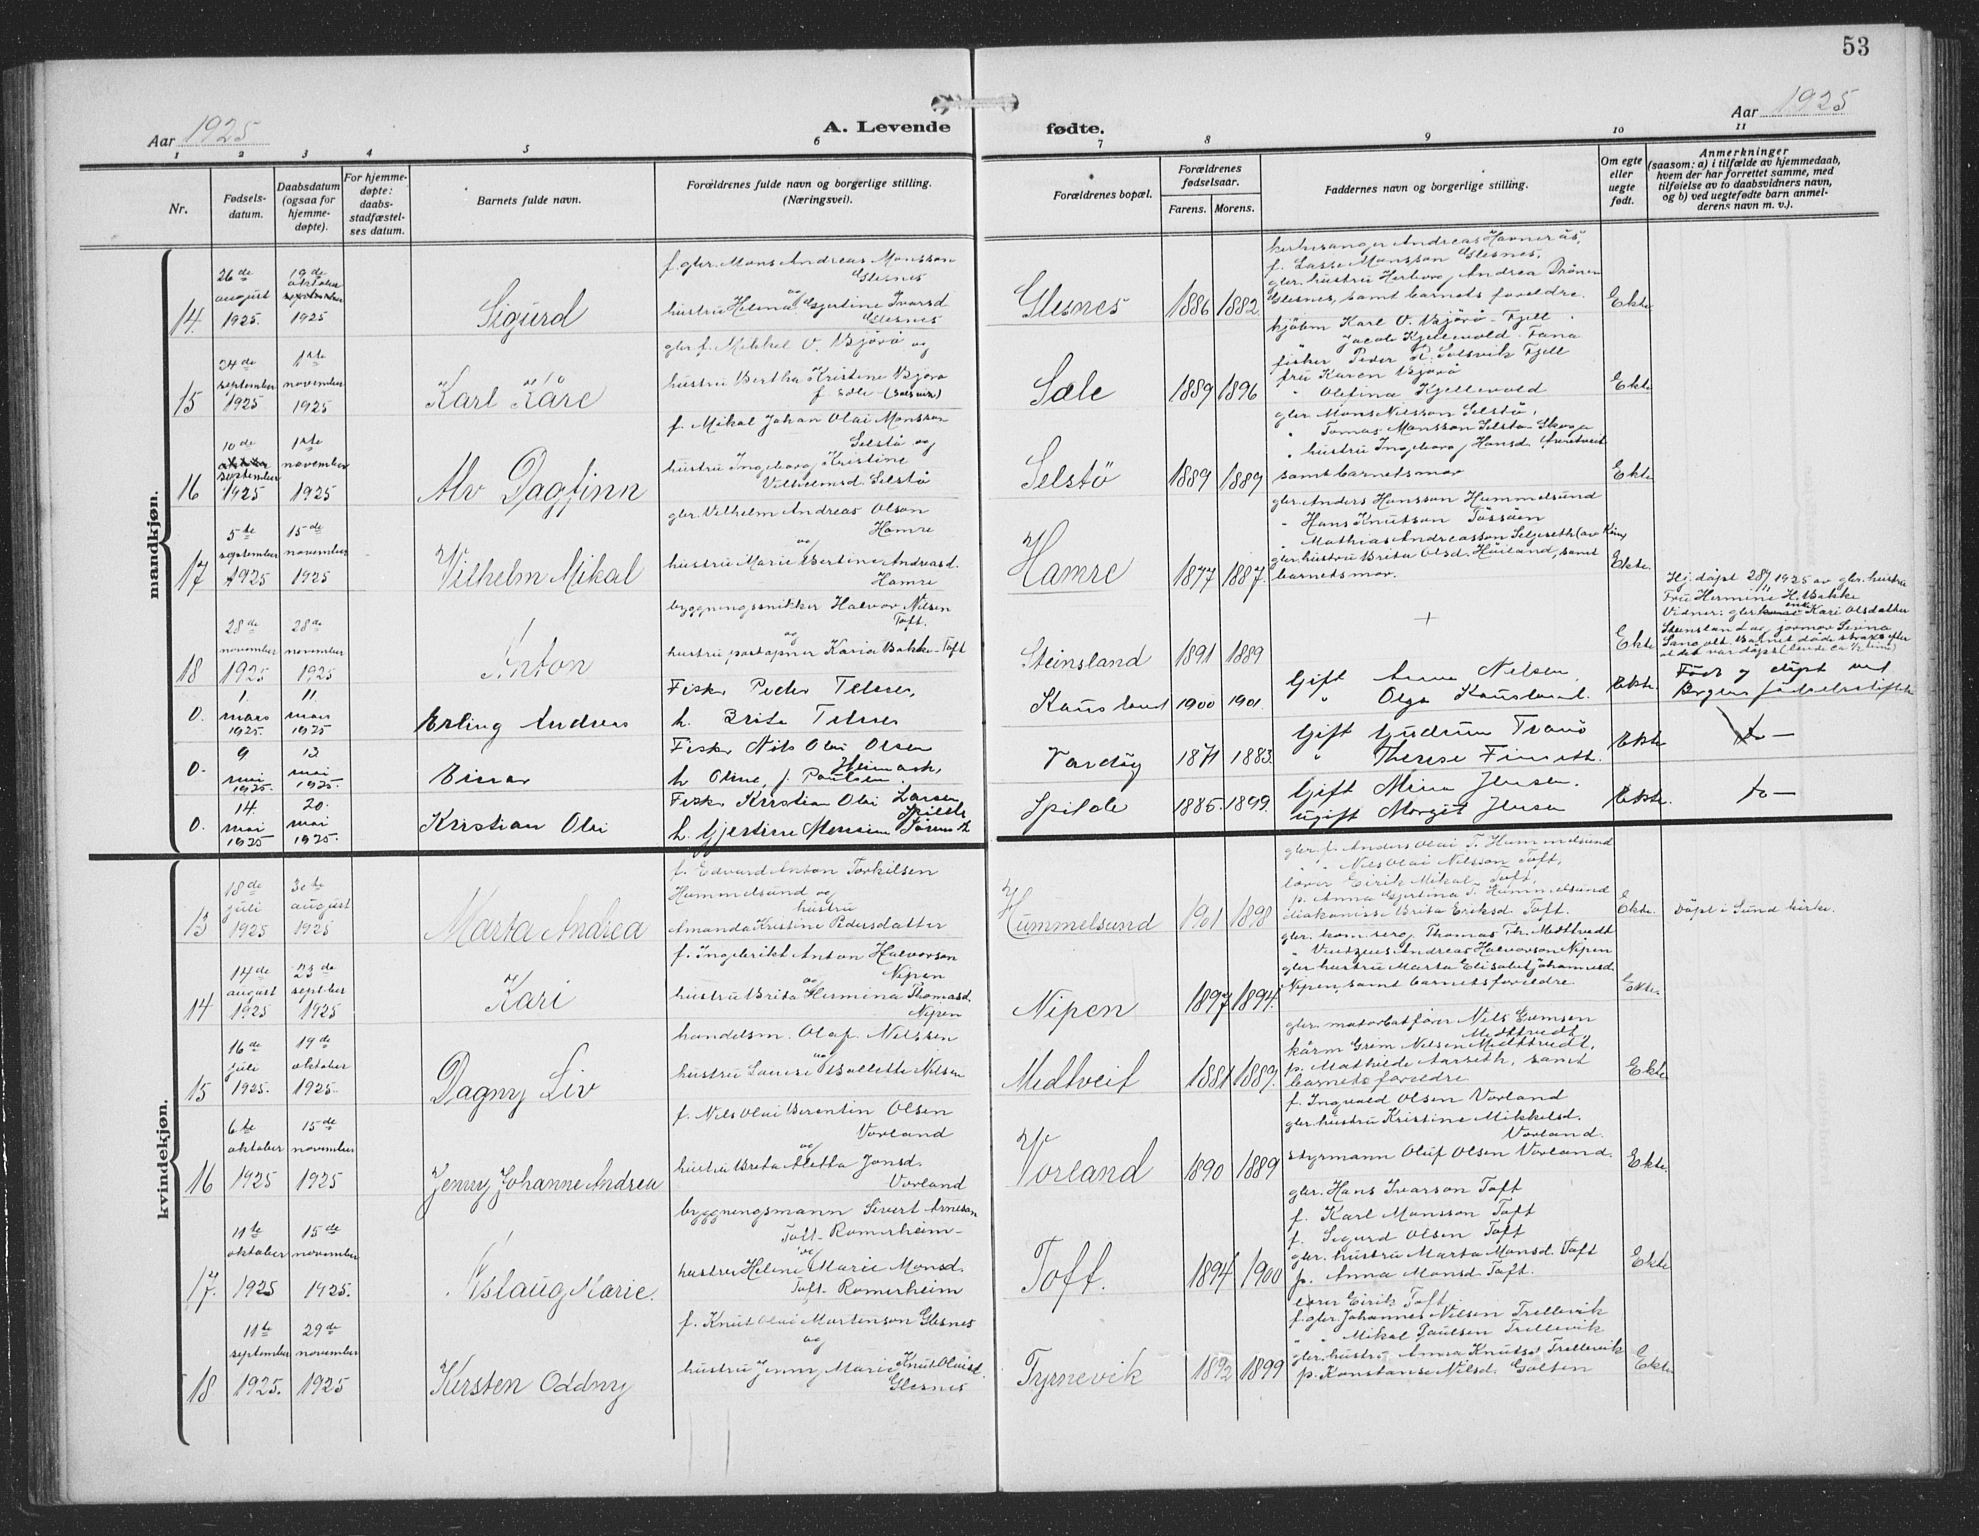 53
Aar 1925
A. Levende fødte.
Aar 1925
1 2 3 4 5 6 7 8 9 10 11
Nr.
Fødsels-
datum.
Daabsdatum
(ogsaa for
hjemme-
døpte).
For hjemme-
døpte:
daabs-
stadfæstel-
ses datum.
Barnets fulde navn.
Forældrenes fulde navn og borgerlige stilling.
(Næringsvei).
Forældrenes bopæl.
Forældrenes
fødselsaar.
Farens. Morens.
Faddernes navn og borgerlige stilling.
Om egte
eller
uegte
født.
Anmerkninger
(saasom: a) i tilfælde av hjemmedaab,
hvem der har forrettet samme, med
tilføielse av to daabsvidners navn,
og b) ved uegtefødte barn anmel-
derens navn m. v.).
mandkjøn.
14.
26de
august
1925.
19de
oktober
september
1925
Sigurd
f. gbr. Mons Andreas Monsson
Glesnes
og
hustru Helena Gjertine Ivarsd
Glesnes
Glesnes
1886 1882
kirkesanger Andreas Havnerås,
f. Lasse Monsson Glesnes,
gbr. hustru Herborg Andrea Drönen
Glesnes, samt barnets foreldre.
Ekte
15
24de
september
1925
1ste
november
1925
Karl Kåre
gbr. f. Mikkel O. Bjørø og
hustru Bertha Kristine Bjørø
f. Sæle (Solsvik)
Sæle
1889 1896
kjøbm Karl O. Bjørø Fjell
" Jacob Kjellevold Fana
fisker Peder Solsvik Fjell
fru Karen Bjørø
" Olefina Kjellevold
Ekte
16
10de
september
1925
1ste
november
1925
Alv Dagfinn
f. Mikal Johan Olai Monsson
Selstö og
hustru Ingeborg Kristine
Vilhelmsd Selstö
Selstö
1889 1889
gbr Mons Nilsson Selstö,
" Tomas Monsson Selstö Skoge
" hustru Ingeborg Hansd.
samt barnets mor
Ekte
17
5te
september
1925
15de
november
1925
Vilhelm Mikal
gbr. Vilhelm Andreas Olson
Hamre
og
hustru Marie Bertine Andreasd.
Hamre
Hamre
1877 1887.
gbr. Anders Hansson Hummelsund
" Hans Knutson Tössöen
" Mathias Andreasson Seljeseth
gbr. hustru Brita Olsd. Höiland, samt
barnets mor.
Ekte.
18
28de
november
1925
28de
november
1925
Anton
bygningssnikker Halvor Nilsen
Toft.
og
hustru poståpner Karia Bakke-Toft
Steinsland
1891 1889
+
Ekte
Hj. døpt 28/11 1925 av gbr. hustru
Fru Hermine H. Bakke
Vidner: gbr. enke Kari Olsdatter
Steinsland og jormor Sevina
Sangolt. Barnet døde straks efter
at det var døpt (levde ca 1/2 time)
0.
1.
mars
1925.
11
mars
1925
Erling Andreas
Fisker Peder Telnes,
h. Brita Telnes
Kausland
1900 1901
Gift Anna Nilsen,
" Olga Kausland.
Ekte.
Født og døpt ved
Bergens fødselsstiftelse
0.
9
mai
1925.
13
mai
1925.
Einar
Fisker Nils Olai Olsen
Heimark,
h. Oline, f. Paulsen.
Vardöy
1871 1883.
Gift Gudrun Tranö
" Therese Finseth.
Ekte
do —
0.
14.
mai
1925
20.
mai
1925.
Kristian Olai
Fisker Kristian Olai Larsen
Spilde
h. Gjertine Monsine
Spilde
1885. 1899.
Gift Mina Jensen.
Ugift Margit Jensen
Ekte.
do —
kvindekjøn.
13
18de
juli
1925
30te
august
1925
Marta Andrea
f. Edvard Anton Torkilsen
Hummelsund og
hustru
Amanda Kristine Pedersdatter
Hummelsund
1901 1898
gbr. f. Anders Olai T. Hummelsund
" " Nils Olai Nilsson Toft,
lærer Eirik Mikal Toft,
p. Anna Gjertina T. Hummelsund
diakonisse Brita Eriksd. Toft.
Ekte.
Døpt i Sund kirke.
14
14de
august
1925
23de
septber
1925
Kari
f. Ingebrikt Anton Halvorson
Nipen
og
hustru Brita Hermina Thomasd.
Nipen
Nipen
1897 1894.
gbr. Thomas Th. Midttvedt
" Andreas Halvorson Nipen
gbr hustru Marta Elisabet Johannesd.
Nipen, samt barnets foreldre
Ekte.
15
16de
juli
1925.
19de
oktober
1925.
Dagny Liv
handelsm. Olaf Nilssen
og
hustru Louise Bollette Nilsen
Midtveit
1881 1889.
gbr. Nils Grimsen
Midttvedt,
Grim Nilsen Midttvedt,
p. Mathilde Aarseth, samt
barnets foreldre
Ekte
16
6te
oktober
1925
15de
november
1925
Jenny Johanne Andrea
f. Nils Olai Berentin Olsen
Vorland
og
hustru Brita Aletta Jonsd.
Vorland
Vorland
1890 1889
f. Ingvald Olsen Vorland
gbr hustru Kristine Mikkelsd.
Vorland.
styrmann Oluf Olsen Vorland.
Ekte.
17.
11te
oktober
1925
15de
november
1925.
Aslaug Marie.
bygningsmann Sivert Arneson
Toft-Romerheim-
og
hustru Helene Marie Monsd.
Toft-Romerheim
Toft.
1894 1900
gbr. Hans Ivarson Toft
f. Karl Monsson Toft
f. Sigurd Olsen Toft
gbr. hustru Marta Monsd. Toft
p. Anna Monsd. Toft.
lærer Eirik Toft
Ekte
18
11te
september
1925.
29de
november
1925
Kirsten Oddny
f. Knut Olai Martenson Glesnes
og
hustru Jenny Marie Knut Olaisd.
Glesnes
Tyrnevik
1892 1899
f. gbr. Johannes Nilsen Trellevik
" " Mikal Paulsen Trellevik
gbr. hustru Anna Knutsd. Trellevik
p. Konstanse Nilsd. Golten
Ekte